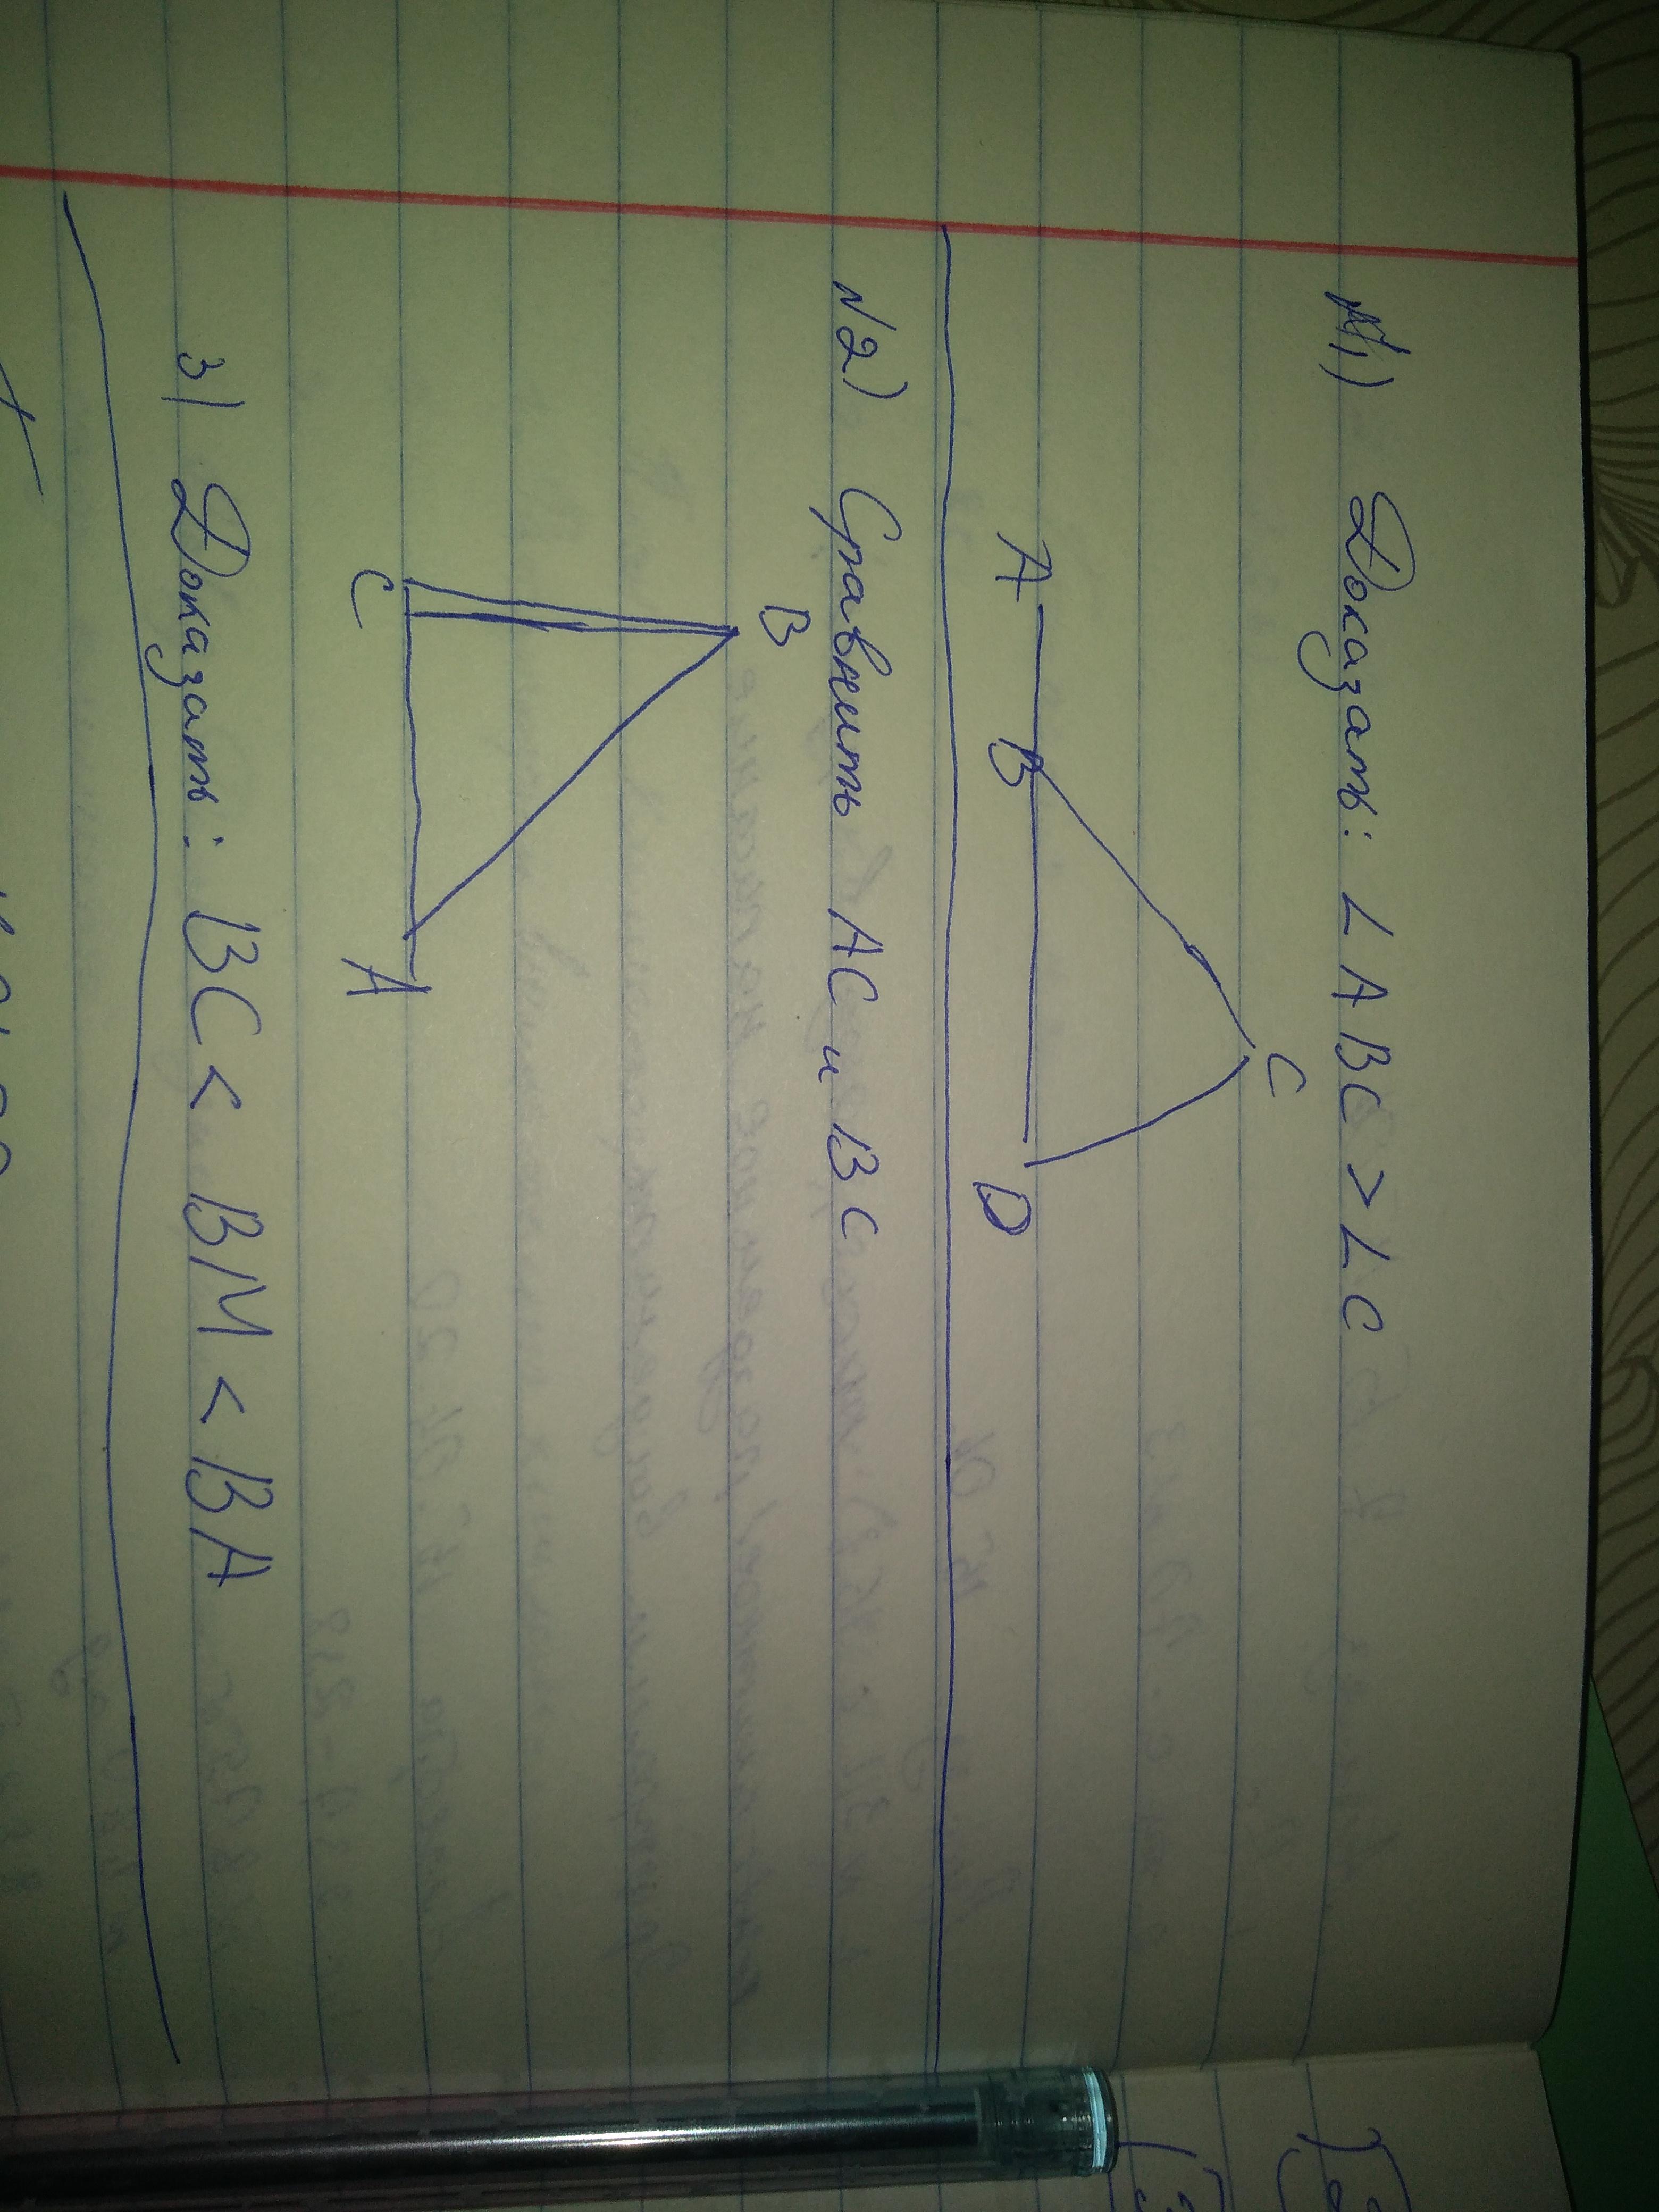 №1) Доказать: L ABC > L C
C
A B D
N2) Сравнить AC и BC
B
C A
3) Доказать: BC < BM < BA